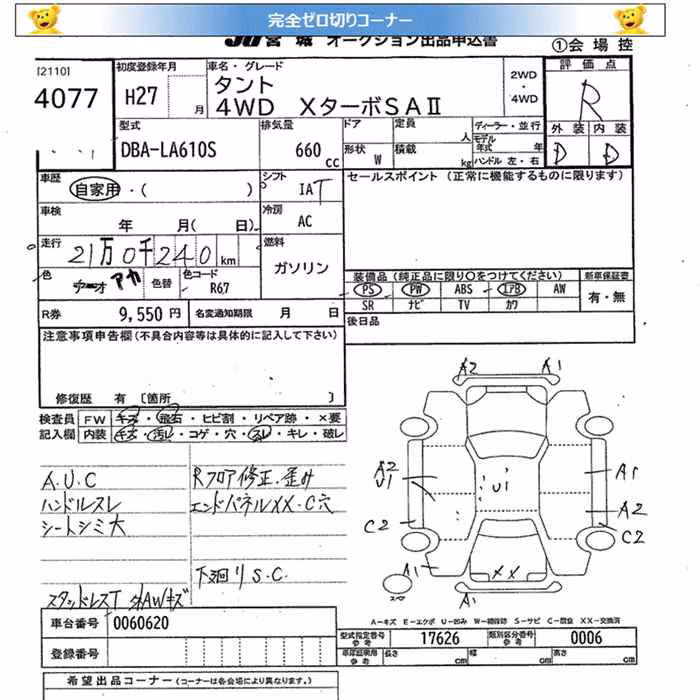 完全ゼロ切りコーナー
JU宮城 オークション出品申込書
①会場控
[2110]
4077
初度登録年月
H27 月
車名・グレード
タント
4WD XターボSAⅡ
2WD・4WD
評価点
R
外装 内装
D D
型式
DBA-LA610S
排気量
660 cc
ドア
形状 W
定員 人
積載 kg
ディーラー・並行
モデル年式 年
ハンドル 左・右
車歴
自家用・( )
シフト
IAT
セールスポイント (正常に機能するものに限ります)
車検
年 月( 日)
冷房
AC
走行
21万0千240km
燃料
ガソリン
色
アカ
色替
色コード
R67
装備品(純正品に限り○をつけてください)
新車保証書
PS PW ABS エアB AW
有・無
SR ナビ TV カワ
R券 9,550円
名変通知期限 月 日
後日品
注意事項申告欄(不具合内容等は具体的に記入して下さい)
修復歴 有 〔箇所 〕
検査員 FW キズ・飛石・ヒビ割・リペア跡・×要
記入欄 内装 キズ・汚レ・コゲ・穴・スレ・キレ・破レ
A.U.C
ハンドルスレ
シートシミ大
スタッドレスT 外AWキズ
Rフロア修正.歪み
エンドパネルXX.C穴
下廻りS.C.
A2 A1
A2
U1
U1
A1
A2
C2 C2
A1
XX
A1
スペア
A－キズ E－エクボ U－凹み W－補修跡 S－サビ C－腐食 XX－交換済
車台番号 0060620
登録番号
型式指定番号 参考 17626
類別区分番号 参考 0006
長さ cm 幅 cm 高さ cm
希望出品コーナー(コーナーは各会場により異なります。)